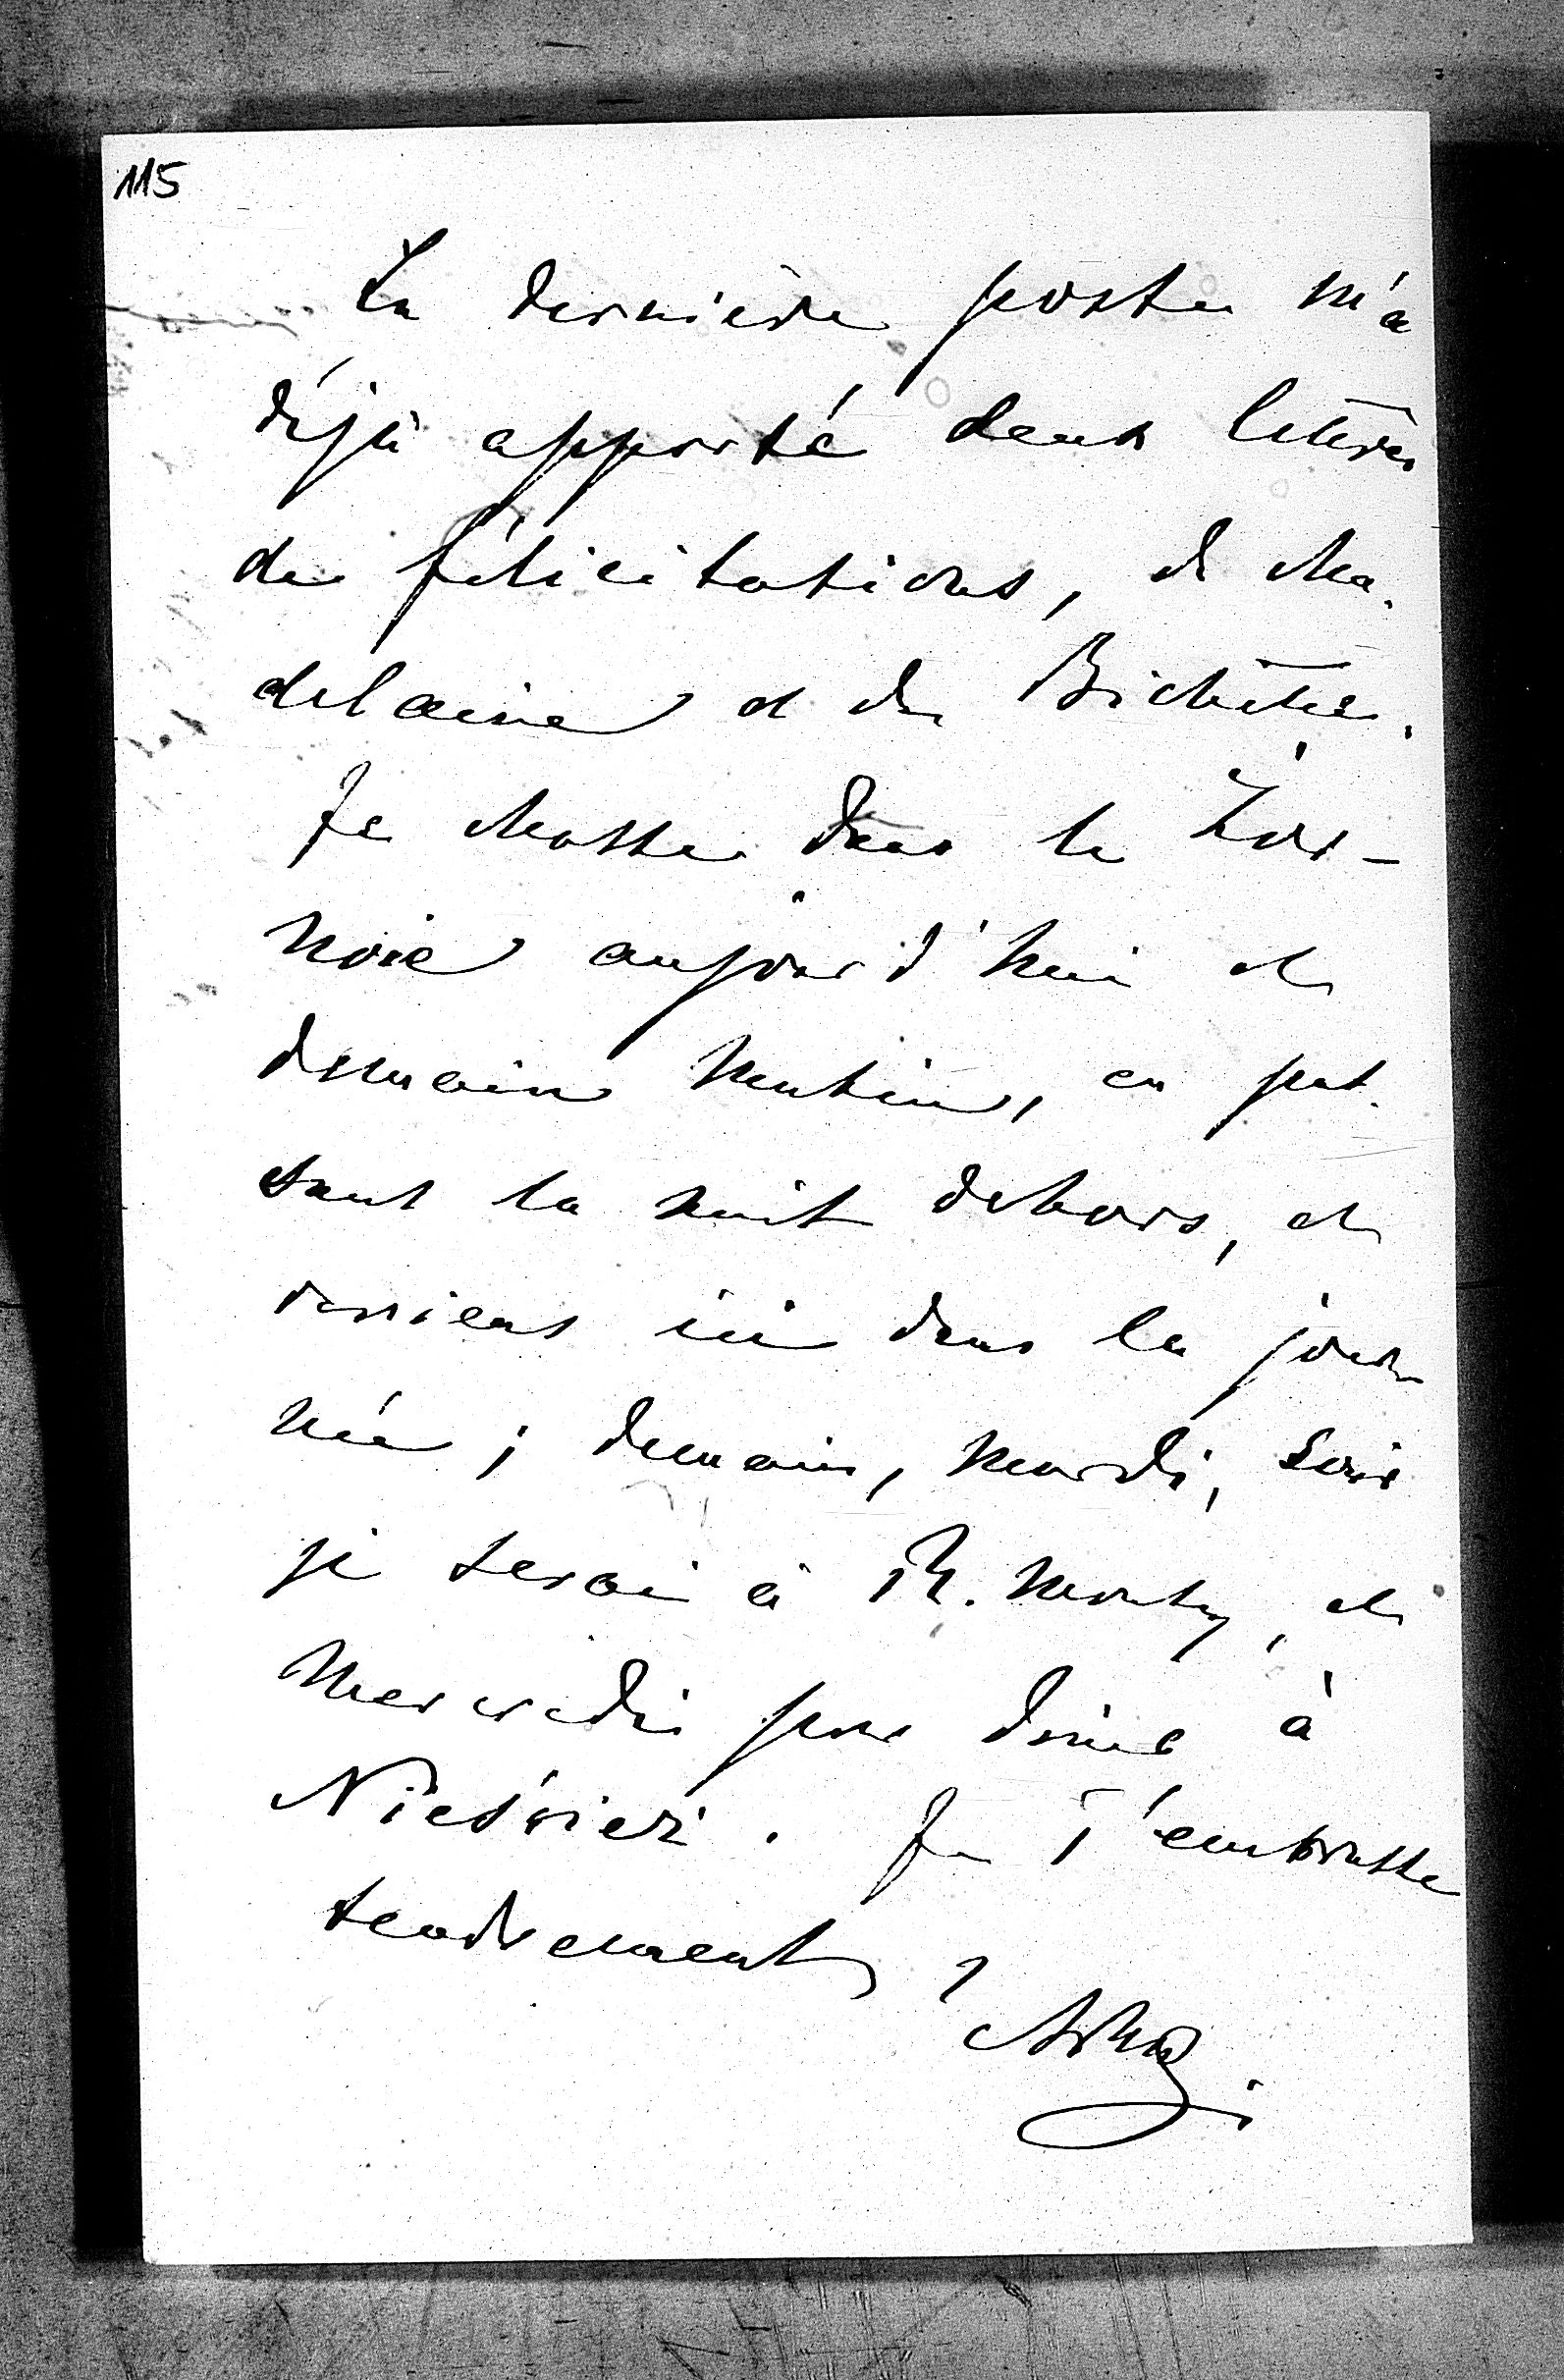 115
La dernière poste m'a
déjà apporté deux lettres
de félicitations, de Ma-
delaine et de Bichette.
Je chasse dans le Żor-
noie aujourd'hui et
demain matin, en pas-
sant la nuit dehors, et
reviens ici dans la jour-
née ; demain, mardi, soir
je serai à R. Monty, et
mercredi pour dîner à
Nieśwież. Je t'embrasse
tendrement,